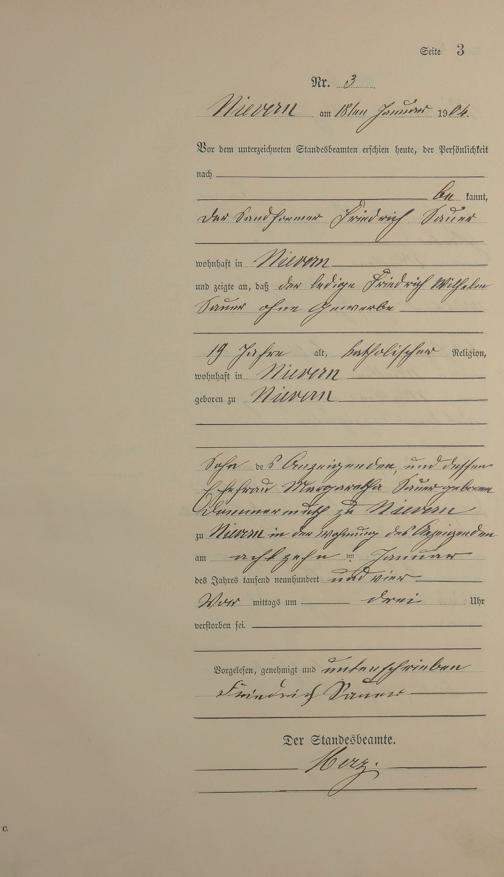 Seite 3
Nr. 3
Nievern am 18ten Januar 1904.
Vor dem unterzeichneten Standesbeamten erschien heute, der Persönlichkeit
nach
be kannt,
der Sandformer Friedrich Sauer
wohnhaft in Nievern
und zeigte an, daß der ledige Friedrich Wilhelm
Sauer ohne Gewerbe
19 Jahre alt, katholischer Religion,
wohnhaft in Nievern
geboren zu Nievern
Sohn des Anzeigenden, und dessen
Ehefrau Margaretha Sauer geborene
zu Nievern
zu Nievern in der Wohnung des Anzeigenden
am achtzehn ten Januar
des Jahres tausend neunhundert und vier
Vor mittags um drei Uhr
verstorben sei.
Vorgelesen, genehmigt und unterschrieben
Friedrich Sauer
Der Standesbeamte.
Herz.
C.